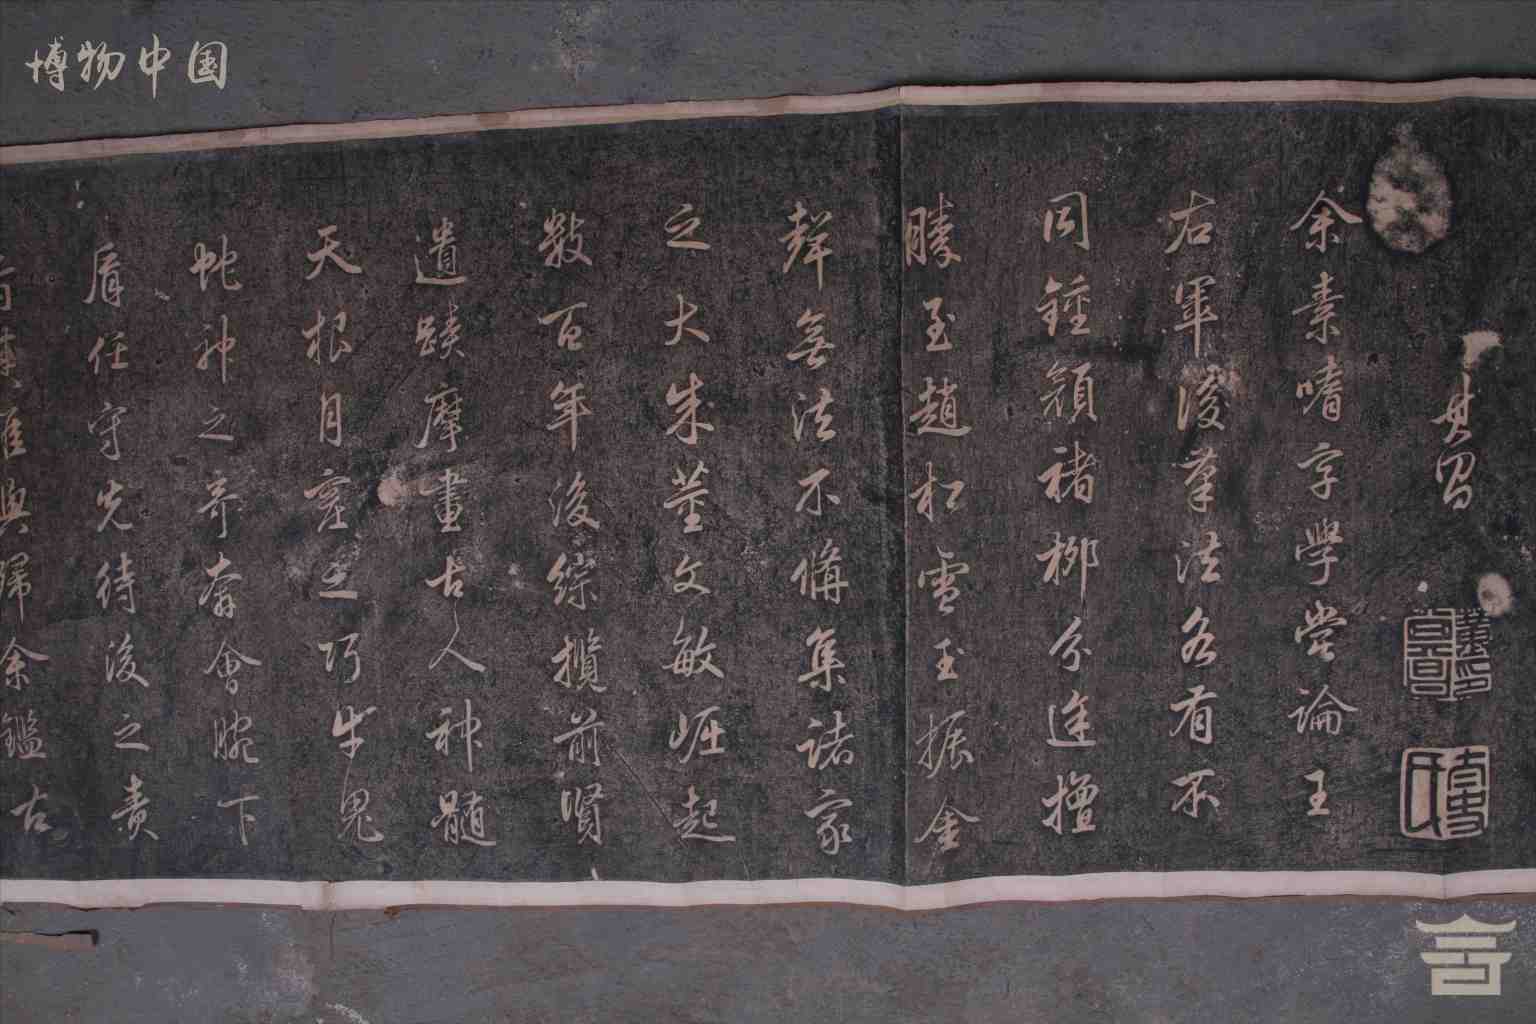 博物中国
其昌
余素嗜字学尝論王
右軍後筆法各有不
同鍾顔褚柳分途擅
勝至趙松雪玉振金
聲無法不備集諸家
之大成董文敏崛起
數百年後綜攬前賢
遺蹟摩畫古人神髓
天根月窟之巧牛鬼
蛇神之奇奔會腕下
肩任守先待後之責
惟與歸余鑑古